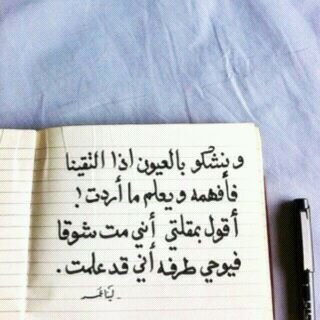 ونشكو بالعيون اذا التقينا
فأفهمه ويعلم ما أردت !
أقول بمقلتي أني مت شوقا
فيوحي طرفه أني قد علمت .